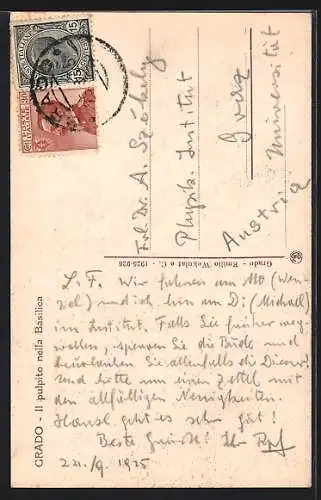 GRADO - Il pulpito nella Basilica
Grado - Emilio Wekulat e C. - 1925-926
Frl. Dr. A. Székely
Physik. Institut
Graz
Universität
Austria
L. F. Wir fahren am Mo (Wen-
zel) und ich bin am Di (Michael)
im Institut. Falls Sie früher weg-
wollen, sperren Sie die Bude und
beurlauben Sie allenfalls die Diener
und bitte um einen Zettel mit
den allfälligen Neuigkeiten.
Hansl geht es sehr gut!
Beste Grüsse! Ihr
24./9. 1925